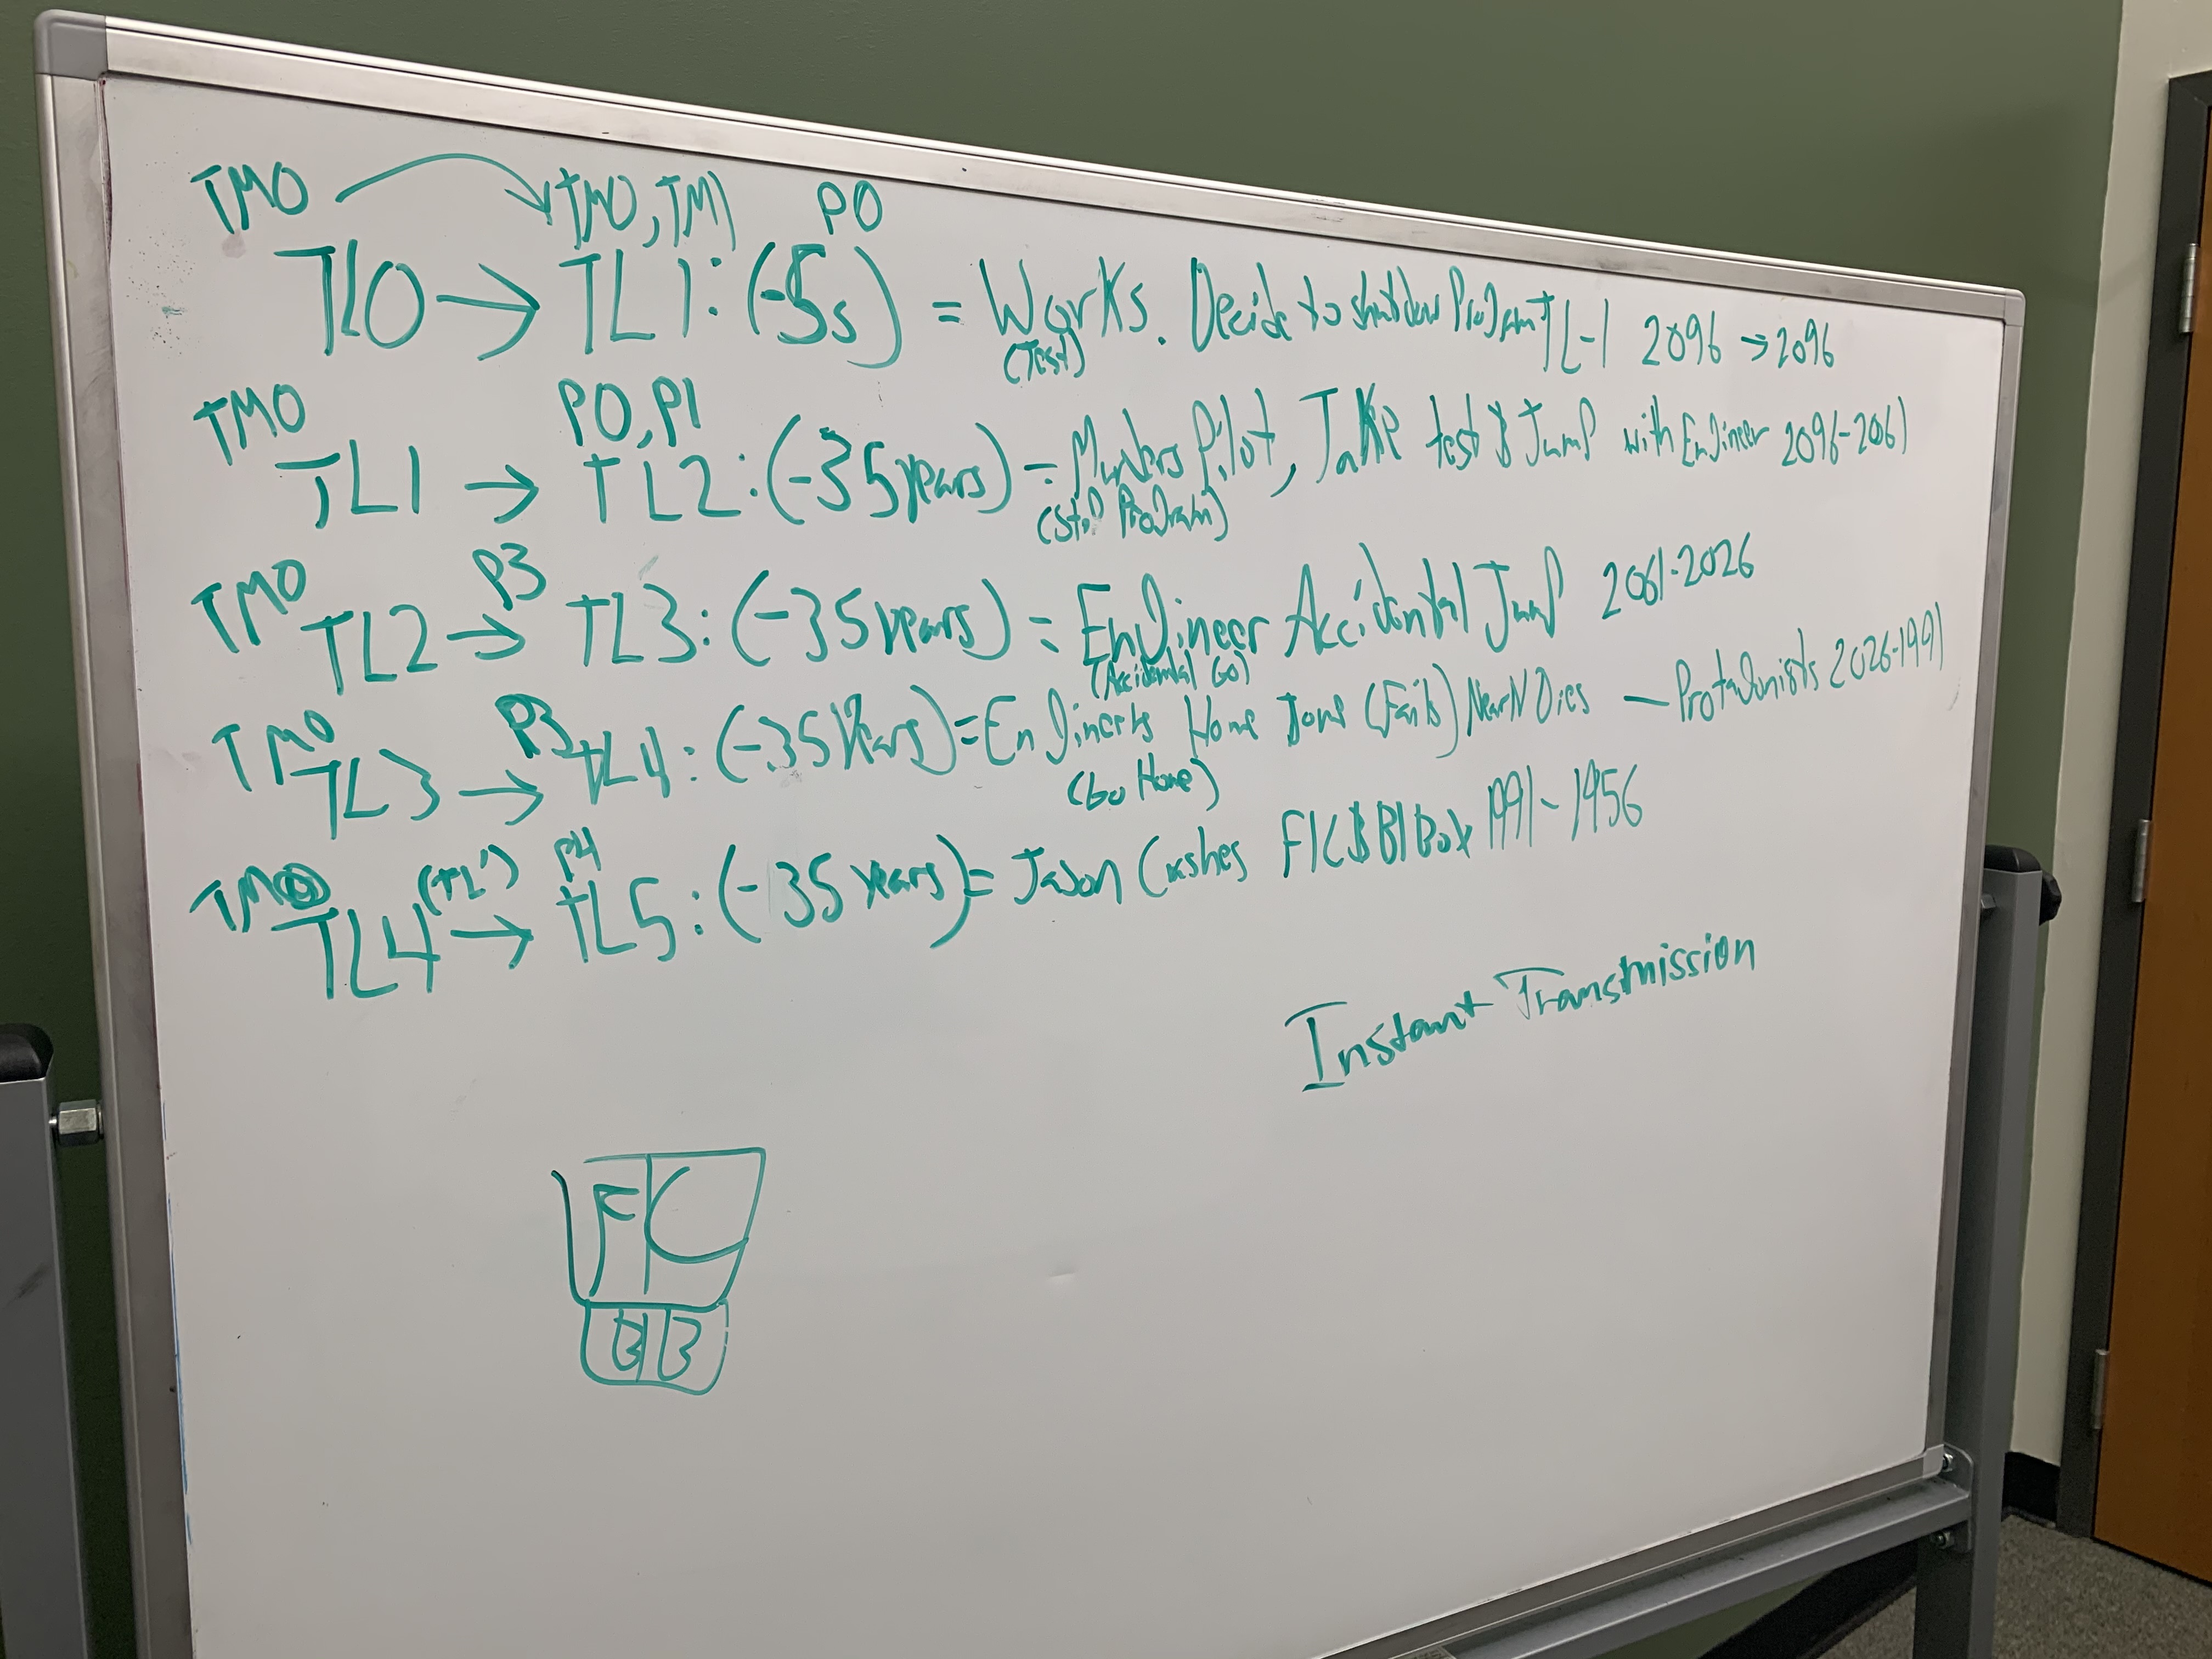 TM0 TM0, TM1 P0
TL0 → TL1: (-5s) = Works. Decide to shutdow Program TL-1 2096 → 2096
(Test)
TM0 P0, P1
TL1 → TL2: (-35 years) = Murders Pilot, Take test & Jump with Engineer 2096-2061
(Stop Program)
TM0 P3
TL2 → TL3: (-35 years) = Engineer Accidental Jump 2061-2026
(Accidental Go)
TM0 P3
TL3 → TL4: (-35 Years) = Engineers Home (Fails) Dies — Protagonists 2026-1991
(Go Home)
TM0 (TL') P4
TL4 → TL5: (-35 years) = Jason Crashes F/C & B/ Box 1991-1956
Instant Transmission
F C
B B